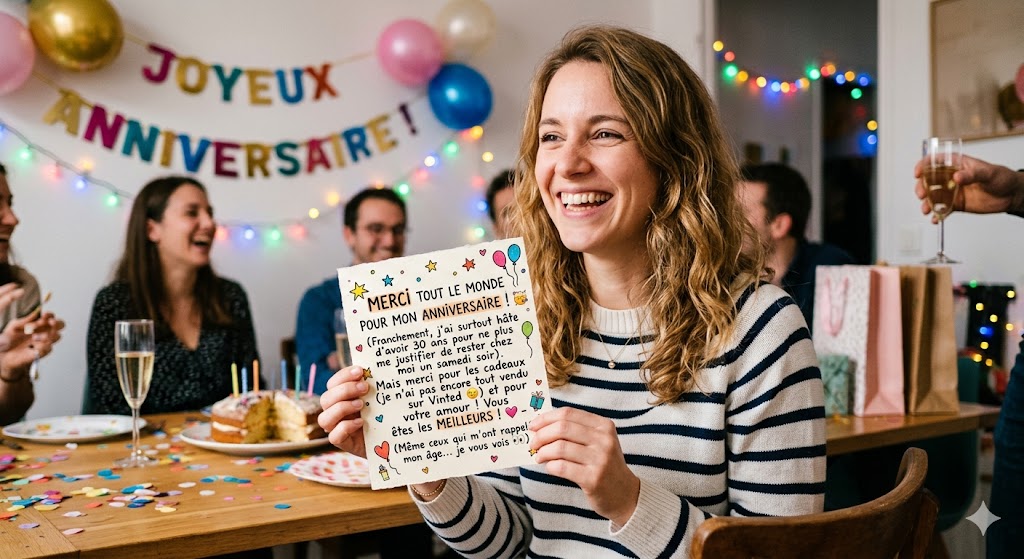 JOYEUX
ANNIVERSAIRE !
MERCI TOUT LE MONDE
POUR MON ANNIVERSAIRE !
(Franchement, j'ai surtout hâte
d'avoir 30 ans pour ne plus
me justifier de rester chez
moi un samedi soir).
Mais merci pour les cadeaux
(je n'ai pas encore tout vendu
sur Vinted 😉) et pour
votre amour ! Vous
êtes les MEILLEURS !
(Même ceux qui m'ont rappel
mon âge... je vous vois 👀)